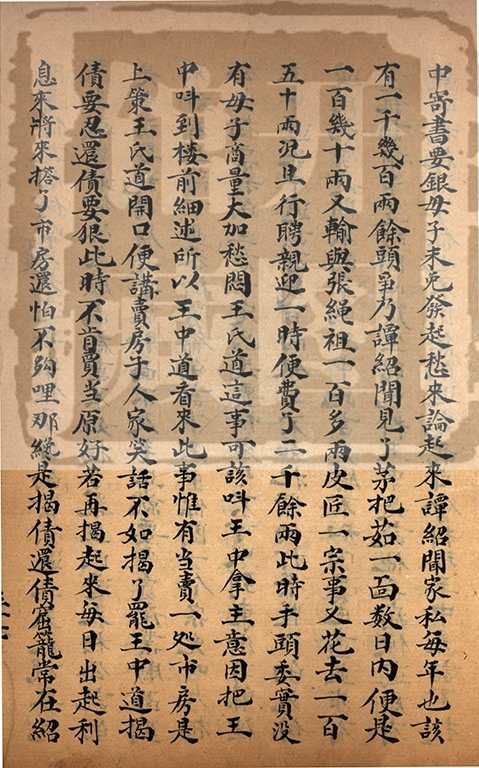 中寄書要銀母子未免發起愁來論起來譚紹聞家私每年也該
有一千幾百兩餘頭爭乃譚紹聞見了茅把茹一面数日內便是
一百幾十兩又輸與張繩祖一百多兩皮匠一宗事又花去一百
五十兩况且行聘親迎一時便費了二千餘兩此時手頭委實没
有母子商量大加愁悶王氏道這事可該呌王中拿主意因把王
中呌到楼前細述所以王中道看來此事惟有当賣一処市房是
上策王氏道開口便講賣房子人家笑話不如揭了罷王中道揭
债要忍還债要狠此時不肯賣当原好若再揭起來每日出起利
息來將來搭了市房還怕不彀哩那纔是揭债還债窟籠常在紹